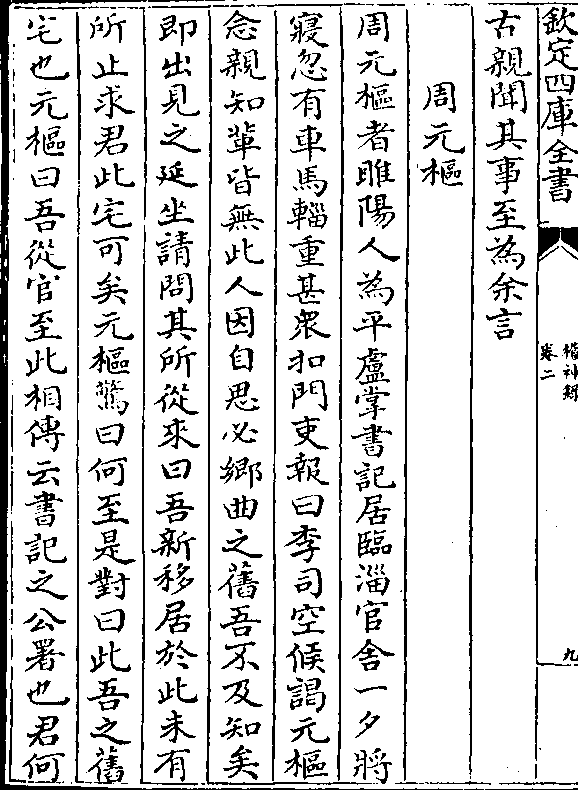 欽定四庫全書
稽神録
卷二
九
古親聞其事至為余言
周元樞
周元樞者睢陽人為平盧掌書記居臨淄官舍一夕將
寢忽有車馬輜重甚衆扣門吏報曰李司空候謁元樞
念親知輩皆無此人因自思必鄉曲之舊吾不及知矣
即出見之延坐請問其所從來曰吾新移居於此未有
所止求君此宅可矣元樞驚曰何至是對曰此吾之舊
宅也元樞曰吾從官至此相傳云書記之公署也君何